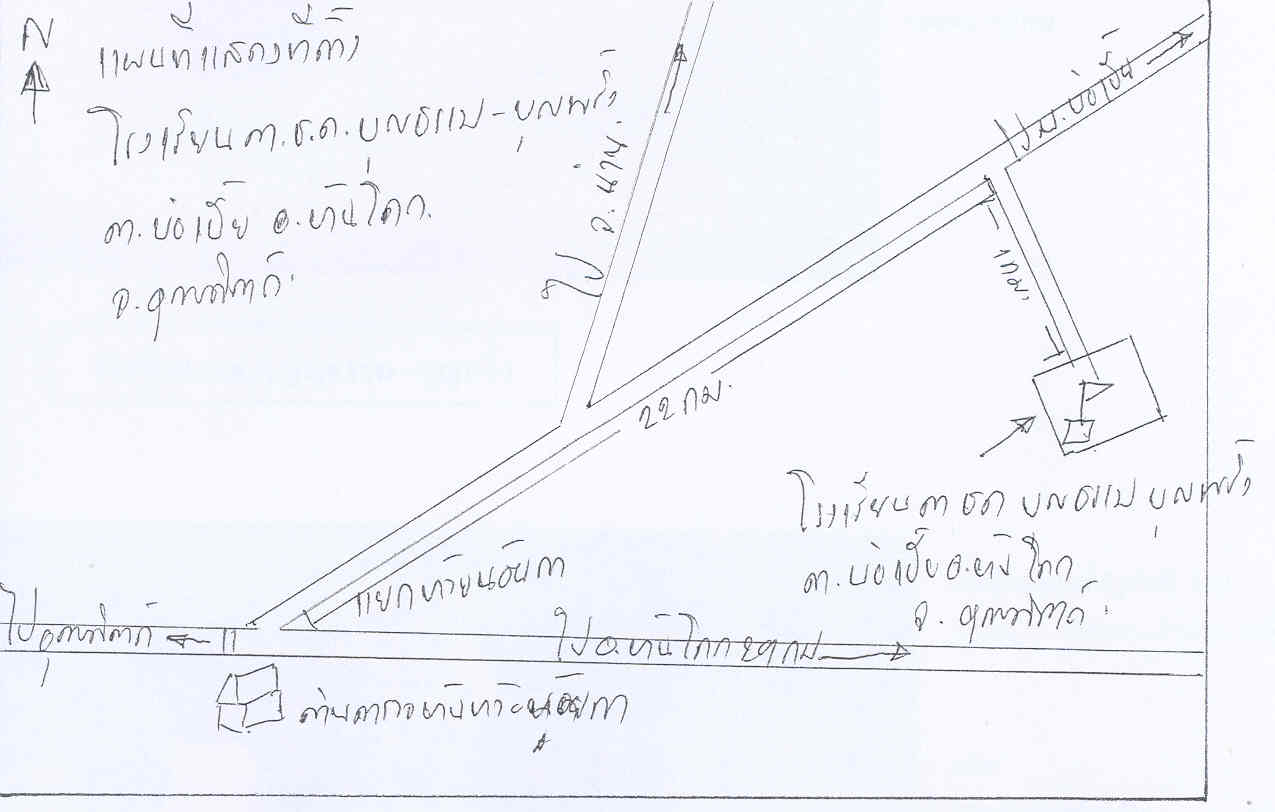 N
แผนที่แสดงที่ตั้ง
โรงเรียน ต.ช.ด. บุญธรรม-บุญพริ้ง
ต.บ่อเบี้ย อ.บ้านโคก.
จ.อุตรดิตถ์.
ไป จ.น่าน.
ไป ม.บ่อเบี้ย
1 กม.
22 กม.
โรงเรียน ต ชด บุญธรรม บุญพริ้ง
ต.บ่อเบี้ย อ.บ้านโคก
จ. อุตรดิตถ์.
แยกห้วยน้อยกา
ไปอุตรดิตถ์
ไป อ.บ้านโคก 29 กม
ด่านตรวจ